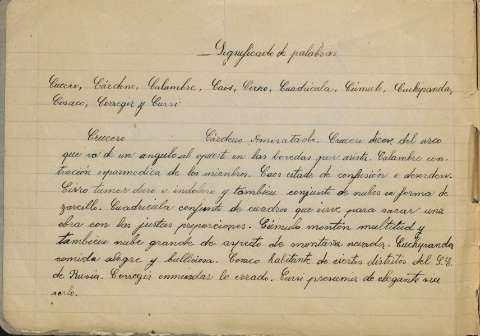 Significado de palabras
Crucero, Cárdeno, Calambre, Caos, Cirro, Cuadrícula, Cúmulo, Cuchipanda,
Cosaco, Corregir y Cursi
Crucero Cárdeno Amoratado. Crucero dícese del arco
que va de un angulo al opuesto en las bovedas por arista. Calambre con-
tracción espasmodica de los miembros. Caos estado de confusión o desorden.
Cirro tumor duro e indoloro y tambien conjunto de nubes en forma de
zarcillo. Cuadrícula conjunto de cuadros que sirve para sacar una
obra con las justas proporciones. Cúmulo montón multitud y
tambien nube grande de aspecto de montaña nevada. Cuchipanda
comida alegre y bulliciosa. Cosaco habitante de ciertos distritos del S.E.
de Rusia. Corregir enmendar lo errado. Cursi presumir de elegante sin
serlo.